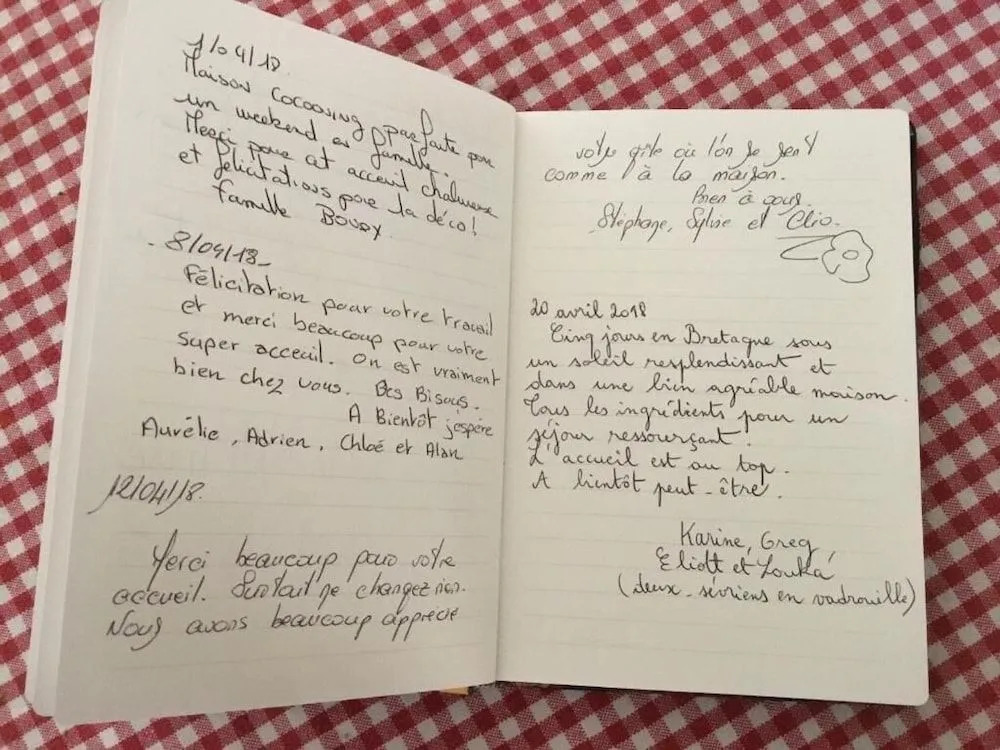 1/04/18.
Maison cocooning parfaite pour
un weekend en famille.
Merci pour cet acceuil chaleureux
et félicitations pour la déco!
Famille
8/04/18-
Félicitation pour votre travail
et merci beaucoup pour votre
super acceuil. On est vraiment
bien chez vous. Bcs Bisous.
A Bientôt j'espère
Aurélie, Adrien, Chloé et Alan
12/04/18.
Merci beaucoup pour votre
accueil. Surtout ne changez rien.
Nous avons beaucoup apprécié
votre gîte où l'on se sent
comme à la maison.
Bien à vous.
Stéphane, Sylvie et Clio.
20 avril 2018
Cinq jours en Bretagne sous
un soleil resplendissant et
dans une bien agréable maison.
Tous les ingrédients pour un
séjour ressourçant.
L'accueil est au top.
A bientôt peut-être.
Karine, Greg,
Eliott et Louka
(deux-sévriens en vadrouille)